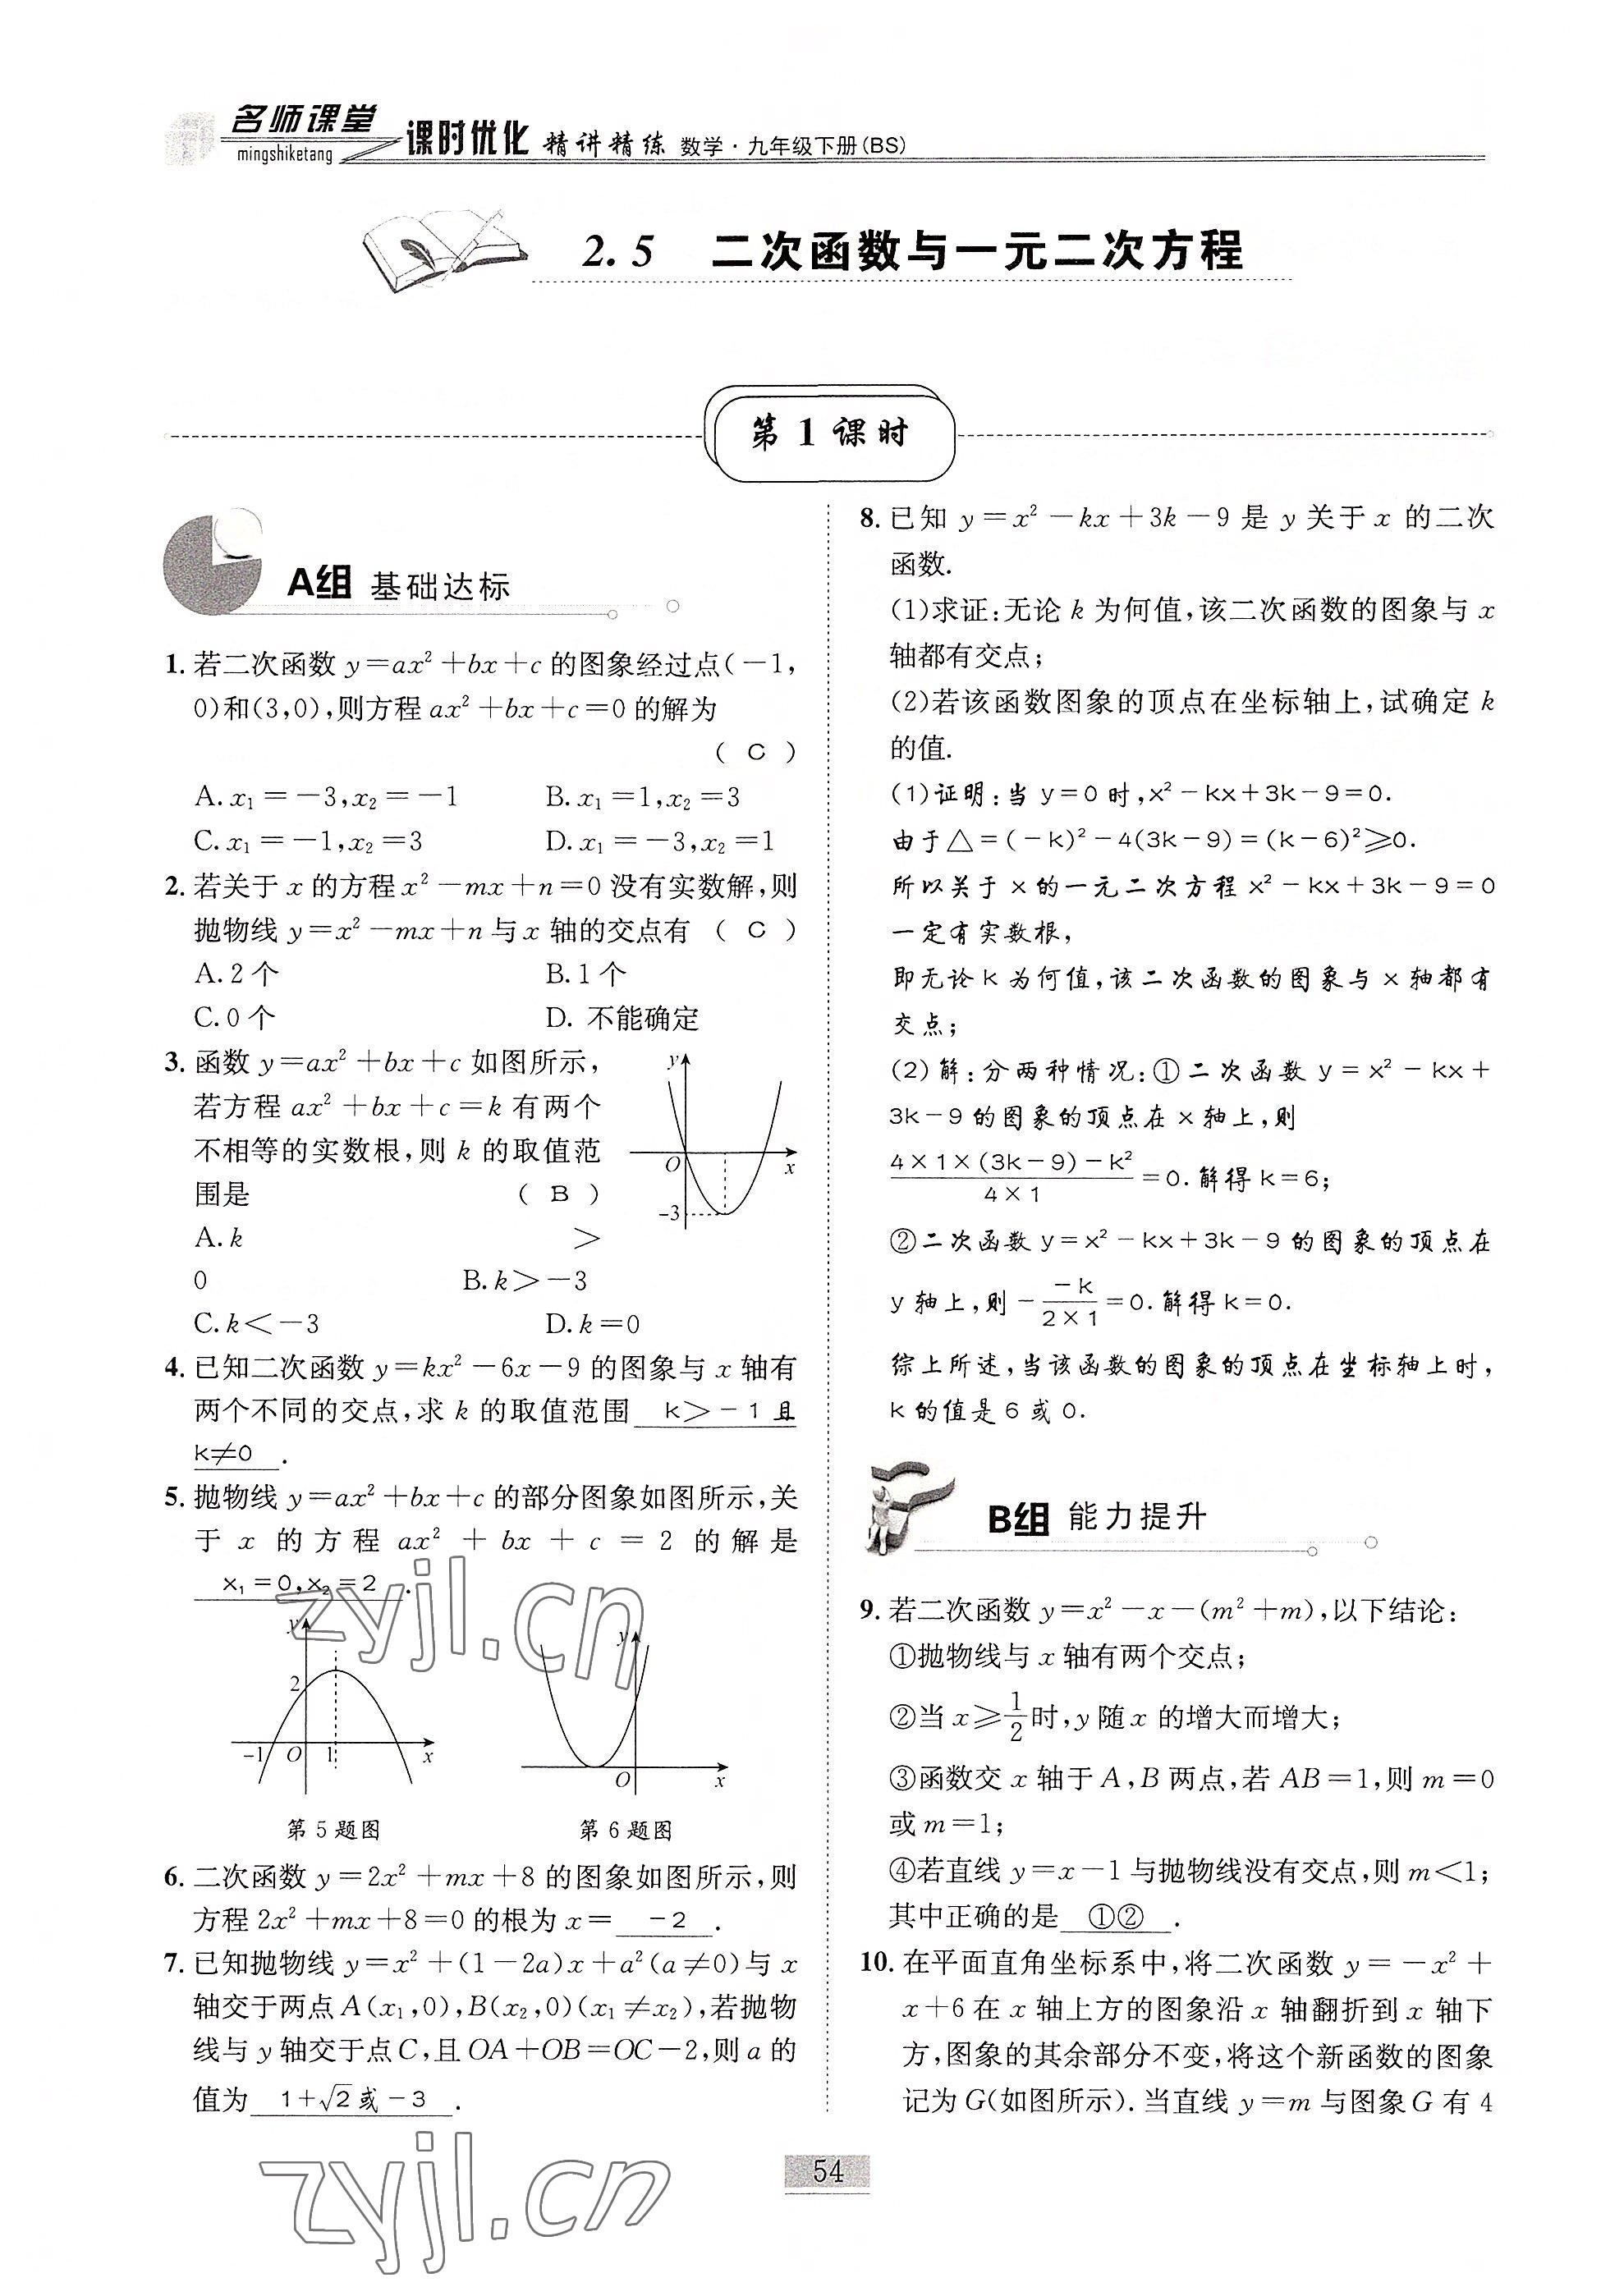 名师课堂
mingshiketang
课时优化 精讲精练 数学·九年级下册(BS)
2.5 二次函数与一元二次方程
第1课时
A组 基础达标
1. 若二次函数 y=ax²+bx+c 的图象经过点(-1,
0)和(3,0),则方程 ax²+bx+c=0 的解为
( C )
A. x₁=-3,x₂=-1 B. x₁=1,x₂=3
C. x₁=-1,x₂=3 D. x₁=-3,x₂=1
2. 若关于 x 的方程 x²-mx+n=0 没有实数解,则
抛物线 y=x²-mx+n 与 x 轴的交点有 ( C )
A. 2个 B. 1个
C. 0个 D. 不能确定
3. 函数 y=ax²+bx+c 如图所示,
若方程 ax²+bx+c=k 有两个
不相等的实数根,则 k 的取值范
围是 ( B )
A. k >
0 B. k>-3
C. k<-3 D. k=0
y
O
x
-3
4. 已知二次函数 y=kx²-6x-9 的图象与 x 轴有
两个不同的交点,求 k 的取值范围 k>-1 且
k≠0 .
5. 抛物线 y=ax²+bx+c 的部分图象如图所示,关
于 x 的方程 ax²+bx+c=2 的解是
x₁=0,x₂=2 .
y
2
-1 O 1 x
第5题图
y
O x
第6题图
6. 二次函数 y=2x²+mx+8 的图象如图所示,则
方程 2x²+mx+8=0 的根为 x= -2 .
7. 已知抛物线 y=x²+(1-2a)x+a²(a≠0)与 x
轴交于两点 A(x₁,0),B(x₂,0)(x₁≠x₂),若抛物
线与 y 轴交于点 C,且 OA+OB=OC-2,则 a 的
值为 1+√2或-3 .
8. 已知 y=x²-kx+3k-9 是 y 关于 x 的二次
函数.
(1)求证:无论 k 为何值,该二次函数的图象与 x
轴都有交点;
(2)若该函数图象的顶点在坐标轴上,试确定 k
的值.
(1)证明:当 y=0 时,x²-kx+3k-9=0.
由于△=(-k)²-4(3k-9)=(k-6)²≥0.
所以关于 x 的一元二次方程 x²-kx+3k-9=0
一定有实数根,
即无论 k 为何值,该二次函数的图象与 x 轴都有
交点;
(2)解:分两种情况:①二次函数 y=x²-kx+
3k-9 的图象的顶点在 x 轴上,则
4×1×(3k-9)-k²
/4×1 =0.解得 k=6;
②二次函数 y=x²-kx+3k-9 的图象的顶点在
y 轴上,则 -(-k)/(2×1)=0.解得 k=0.
综上所述,当该函数的图象的顶点在坐标轴上时,
k 的值是 6 或 0.
B组 能力提升
9. 若二次函数 y=x²-x-(m²+m),以下结论:
①抛物线与 x 轴有两个交点;
②当 x≥1/2时,y 随 x 的增大而增大;
③函数交 x 轴于 A,B 两点,若 AB=1,则 m=0
或 m=1;
④若直线 y=x-1 与抛物线没有交点,则 m<1;
其中正确的是 ①② .
10. 在平面直角坐标系中,将二次函数 y=-x²+
x+6 在 x 轴上方的图象沿 x 轴翻折到 x 轴下
方,图象的其余部分不变,将这个新函数的图象
记为 G(如图所示).当直线 y=m 与图象 G 有 4
54
zyjl.cn
zyjl.cn